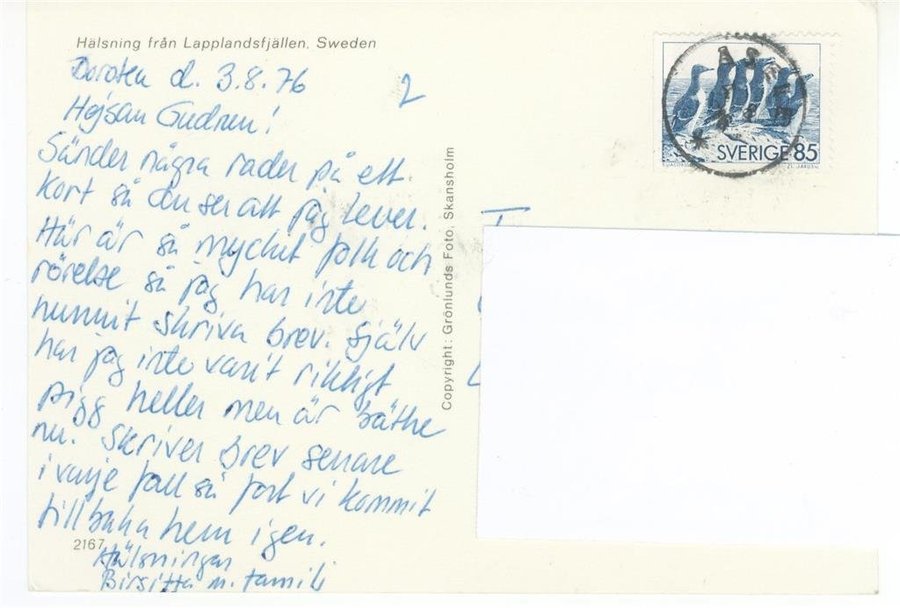 Hälsning från Lapplandsfjällen. Sweden
Dorotea d. 3.8.76
2
Hejsan Gudrun!
Sänder några rader på ett
kort så du ser att jag lever.
Här är så mycket folk och
rörelse så jag har inte
hunnit skriva brev. Själv
har jag inte varit riktigt
pigg heller men är bättre
nu. Skriver brev senare
i varje fall så fort vi kommit
tillbaka hem igen.
Hälsningar
Birgitta m. familj
2167
Copyright: Grönlunds Foto, Skansholm
SVERIGE 85